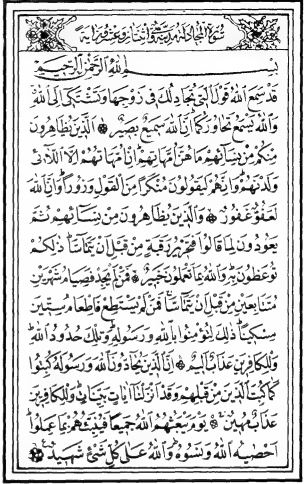 سورة المجادلة مدنية وهي اثنتان وعشرون آية
بسم الله الرحمن الرحيم
قد سمع الله قول التي تجادلك في زوجها وتشتكي إلى الله
والله يسمع تحاوركما إن الله سميع بصير الذين يظاهرون
منكم من نسائهم ما هن أمهاتهم إن أمهاتهم إلا اللائي
ولدنهم وإنهم ليقولون منكرا من القول وزورا وإن الله
لعفو غفور والذين يظاهرون من نسائهم ثم
يعودون لما قالوا فتحرير رقبة من قبل أن يتماسا ذلكم
توعظون به والله بما تعملون خبير فمن لم يجد فصيام شهرين
متتابعين من قبل أن يتماسا فمن لم يستطع فإطعام ستين
مسكينا ذلك لتؤمنوا بالله ورسوله وتلك حدود الله
وللكافرين عذاب أليم إن الذين يحادون الله ورسوله كبتوا
كما كبت الذين من قبلهم وقد أنزلنا آيات بينات وللكافرين
عذاب مهين يوم يبعثهم الله جميعا فينبئهم بما عملوا
أحصيه الله ونسوه والله على كل شيء شهيد